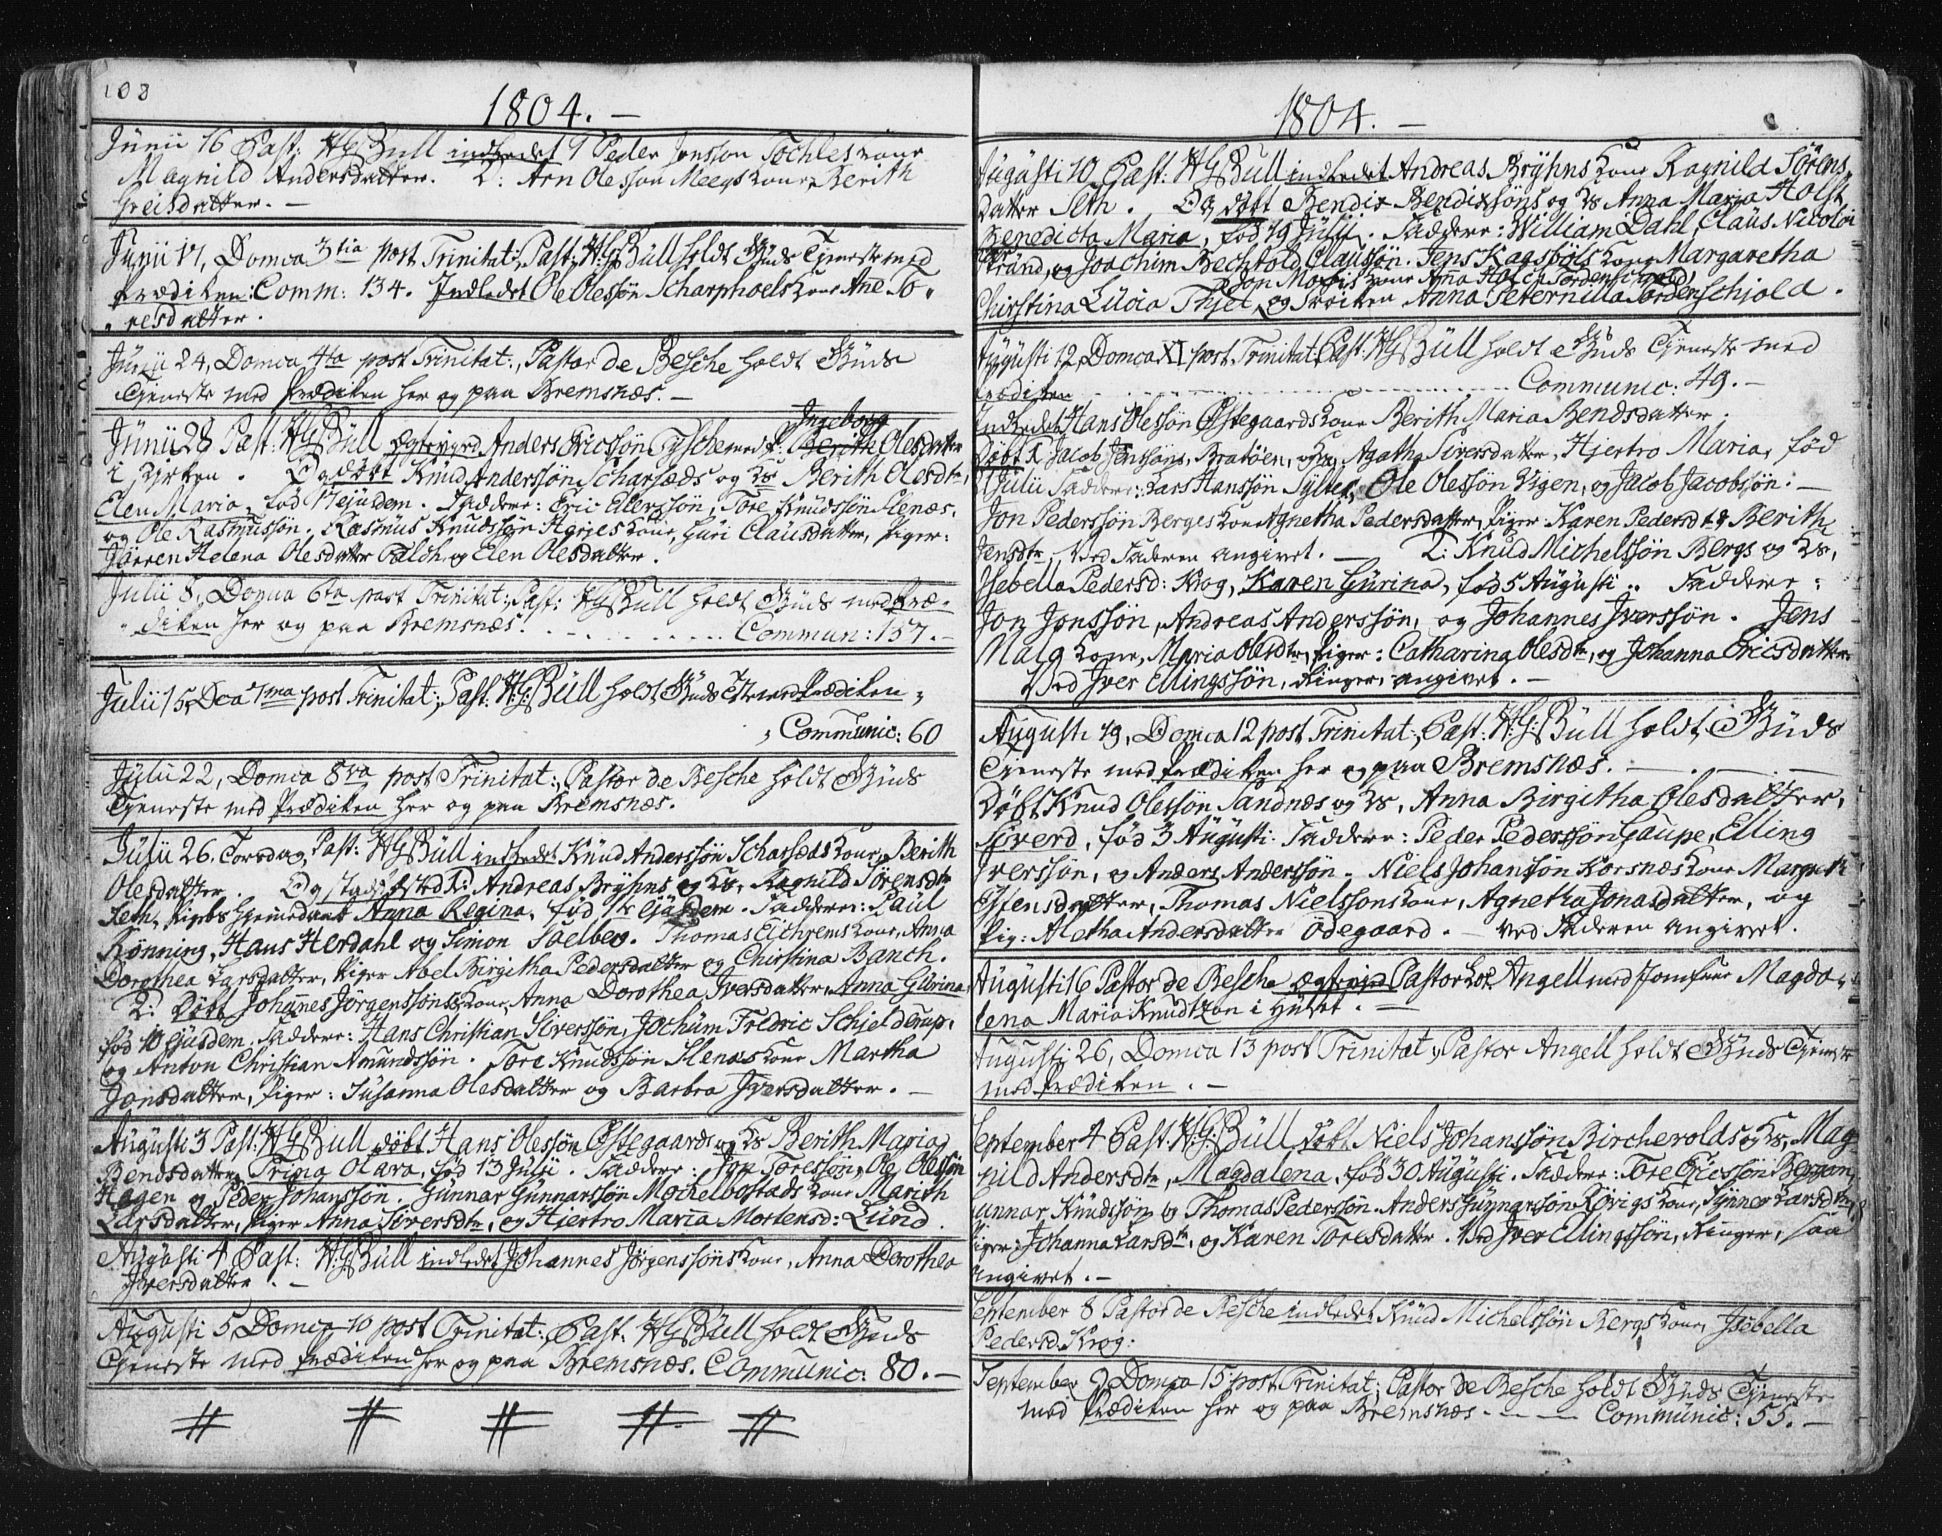 108
1804. –
Junii 16 Past: HGBull indledet 1 Peder Jonsson Tochles Kone
Magnild Andersdatter. 2: Arn Olesson Meegs Kone, Berith
Greisdatter. –
Junii 17, Domca 3tia post Trinitat:, Past: H:G:Büll holdt Guds Tjeneste med
Prædiken: Comm: 134. Indledet Ole Olessøn Scharphoels Kone Ane To-
resdatter.
Junii 24, Domca 4ta post Trinitat:, Pastor de Besche holdt Guds
Tjeneste med Prædiken her og paa Bremsnæs. –
Ingeborg
Junii 28 Past: HGBüll Egteviet Anders Ericssøn Tysche med P: Berithe Olesdatter
i Kirken. Og Døbt Knud Anderssøn Scharsæds og Ks Berith Olesdtr,
Elen Maria, fød 17 ejusdem. Faddere: Eric Elerssøn, Tore Knudssøn Stenæs,
og Ole Rasmussøn. Rasmus Knudssøn Hagies Kone, Guri Clausdatter, Piger:
Jørren Helena Olesdatter Falch og Elen Olesdatter.
Julii 8, Domca 6ta post Trinitat:, Past: HGBüll holdt Guds med Præ-
diken her og paa Bremsnæs. . . . . . . . . . Commun: 157. –
Julii 15 Dca 7ma post Trinitat:, Past: H:G:Büll holdt Guds Tte med Prædiken
Communic: 60
Julii 22, Domca 8va post Trinitat:, Pastor de Besche holdt Guds
Tjeneste med Prædiken her og paa Bremsnæs.
Julii 26, Torsdag, Past: HGBüll indledet Knud Anderssøn Scharsæds Kone, Berith
Olesdatter. Og stadfæsted 1: Andreas Bryhns og Ks, Ragnild Sørensdtr
Seth, Pigebs hjemedøbt Anna Regina, fød 14 ejusdem. Faddere: Paul
Rønning, Hans Herdahl og Simon Soelberg. Thomas Eichrems Kone, Anna
Dorothea Larsdatter, Piger Abel Birgitha Pedersdatter og Christina Banch.
2: Døbt Johannes Jörgenssøns Kone, Anna Dorothea Iversdatter, Anna Gurina,
fød 10 ejusdem. Faddere: Hans Christian Siverssøn, Jochum Fredric Schjelderup,
og Anton Christian Amundssøn. Tore Knudssøn Stenæs Kone Martha
Jonsdatter, Piger: Susanna Olesdatter og Barbra Iversdatter. –
Augusti 3 Past: HGBull døbt Hans Olessøn Østegaards og Ks Berith Maria
Bendsdatter, Trina Olava, fød 13 Julii. Faddere: Jon Toressøn, Ole Olessøn
Hagen og Peder Johanssøn. Gunnar Gunnarssøn Mochelbostads Kone Marith
Larsdatter, Piger Anna Siversdtr, og Hjertro Maria Mortensd: Lund.
Augusti 4 Past: H:GBull indledet Johannes Jørgenssøns Kone, Anna Dorothea
Iversdatter. –
Augusti 5 Domca 10 post Trinitat:, Past: HGBüll holdt Guds
Tjeneste med Prædiken her og paa Bremsnæs. Communic: 80. –
1804. –
Augusti 10, Past: H:G:Bull indledet Andreas Bryhns Kone Ragnild Sörens-
datter Seth. Og døbt Bendix Bendixsøns og Ks Anna Maria Holst,
Benedicta Maria, fød 19 Julii. Faddere: William Dahl, Claus Nicolai
Strand, og Joachim Bechtold Claussøn. Jens Kagsbøls Kone Margaretha
Jon Moxis Kone Anna Holch Tordenschiold,
Christina Lucia Thjel, og Frøiken Anna Peternilla Tordenschjold.
Augusti 12, Domca XI post Trinitat:, Past: HGBüll holdt Guds Tjeneste med
Prædiken . . . . . . . . . . Communic: 49. –
Indledet Hans Olessøn Østegaards Kone Berith Maria Bendsdatter.
Døbt 1: Jacob Jenssøns, Bratøen, og Ks, Agatha Siversdatter, Hjertro Maria, fød
Julii Faddere: Lars Hanssøn Sylter, Ole Olessøn Vigen, og Jacob Jacobsøn. –
Jon Pederssøn Berges Kone Agnetha Pedersdatter, Piger Karen Pedersdtr & Berith
Jensdtr, Ved Faderen angivet. – 2: Knud Michelssøn Bergs og Ks,
Isebella Pedersd: Krog, Karen Gurina, fød 5 Augusti. Faddere:
Jon Jonssøn, Andreas Anderssøn, og Johannes Iverssøn. Jens
Malg Kone, Maria Olesdtr, Piger: Catharina Olesdtr, og Johanna Ericsdatter
Ved Iver Ellingssøn, Ringer, angivet. –
Augusti 19, Domca 12 post Trinitat:, Past: H:G:Büll holdt Guds
Tjeneste med Prædiken her og paa Bremsnæs. –
Døbt Knud Olessøn Sandnæs og Ks, Anna Birgitha Olesdatter,
Siverd, fød 3 Augusti. Faddere: Peder Pederssøn Gaupe, Elling
Iverssøn, og Anders Anderssøn. Niels Johansøn Korsnæs Kone Mareth
Effensdatter, Thomas Nielssons Kone, Agnetha Jonasdatter, og
Pig: Aletha Andersdatter Ödegaard. – Ved Faderen angivet.
Augusti 16 Pastor de Besche Egteviet Pastor Angell med Jomfrue Magda-
lena Maria Knudtzon i Huset. –
Augusti 26, Domca 13 post Trinitat:, Pastor Angell holdt Guds Tjeneste
med Prædiken. –
September 4 Past: H:G:Büll døbt Niels Johanssøn Bircherolds og Ks, Mag-
nild Andersdtr, Magdalena, fød 30 Augusti. Faddere: Tore Ericssøn Bergan,
Gunnar Knudssøn og Thomas Pederssøn. Anders Gunnarssøn Rövigs Kone, Synnev Larsdtr,
Piger: Johanna Larsdtr, og Karen Toresdatter. Ved Iver Ellingssøn, Ringer, saa
angivet. –
September 8 Pastor de Besche indledet Knud Michelssøn Bergs Kone, Isebella
Pedersd: Krog.
September 9 Domca 15 post Trinitat:, Pastor de Besche holdt Guds Tjeneste
med Prædiken her og paa Bremsnæs – – – Communic: 55. –